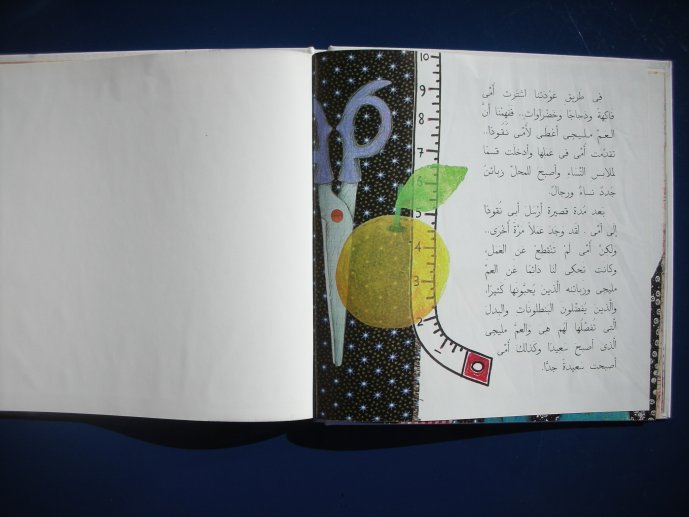 فى طريق عودتنا اشترت أمّى
فاكهة ودجاجًا وخضراوات.. ففهمنا أنّ
العمّ مليجى أعطى لأمّى نُقودًا..
تقدّمت أمّى فى عملها وأدخلت قسمًا
لملابس النّساء وأصبح للمحلّ زبائنُ
جُددٌ نساءٌ ورجالٌ.
بعد مُدة قصيرة أرسَل أبى نُقودًا
إلى أمّى. لقد وجدَ عملاً مرّةً أخْرى..
ولكنْ أمّى لمْ تنقطعْ عن العمَل.
وكانت تحكى لنا دائمًا عن العمّ
مليجى وزبائنه الّذين يُحبّونها كثيرًا،
والّذين يُفضّلون البنطلونات والبدلَ
الّتى تفصّلها لهُم هى والعمّ مليجى
الّذى أصبح سَعيدًا وكذلك أمّى
أصبحت سَعيدةً جدًّا.
10
9
8
7
6
5
4
3
2
1
0